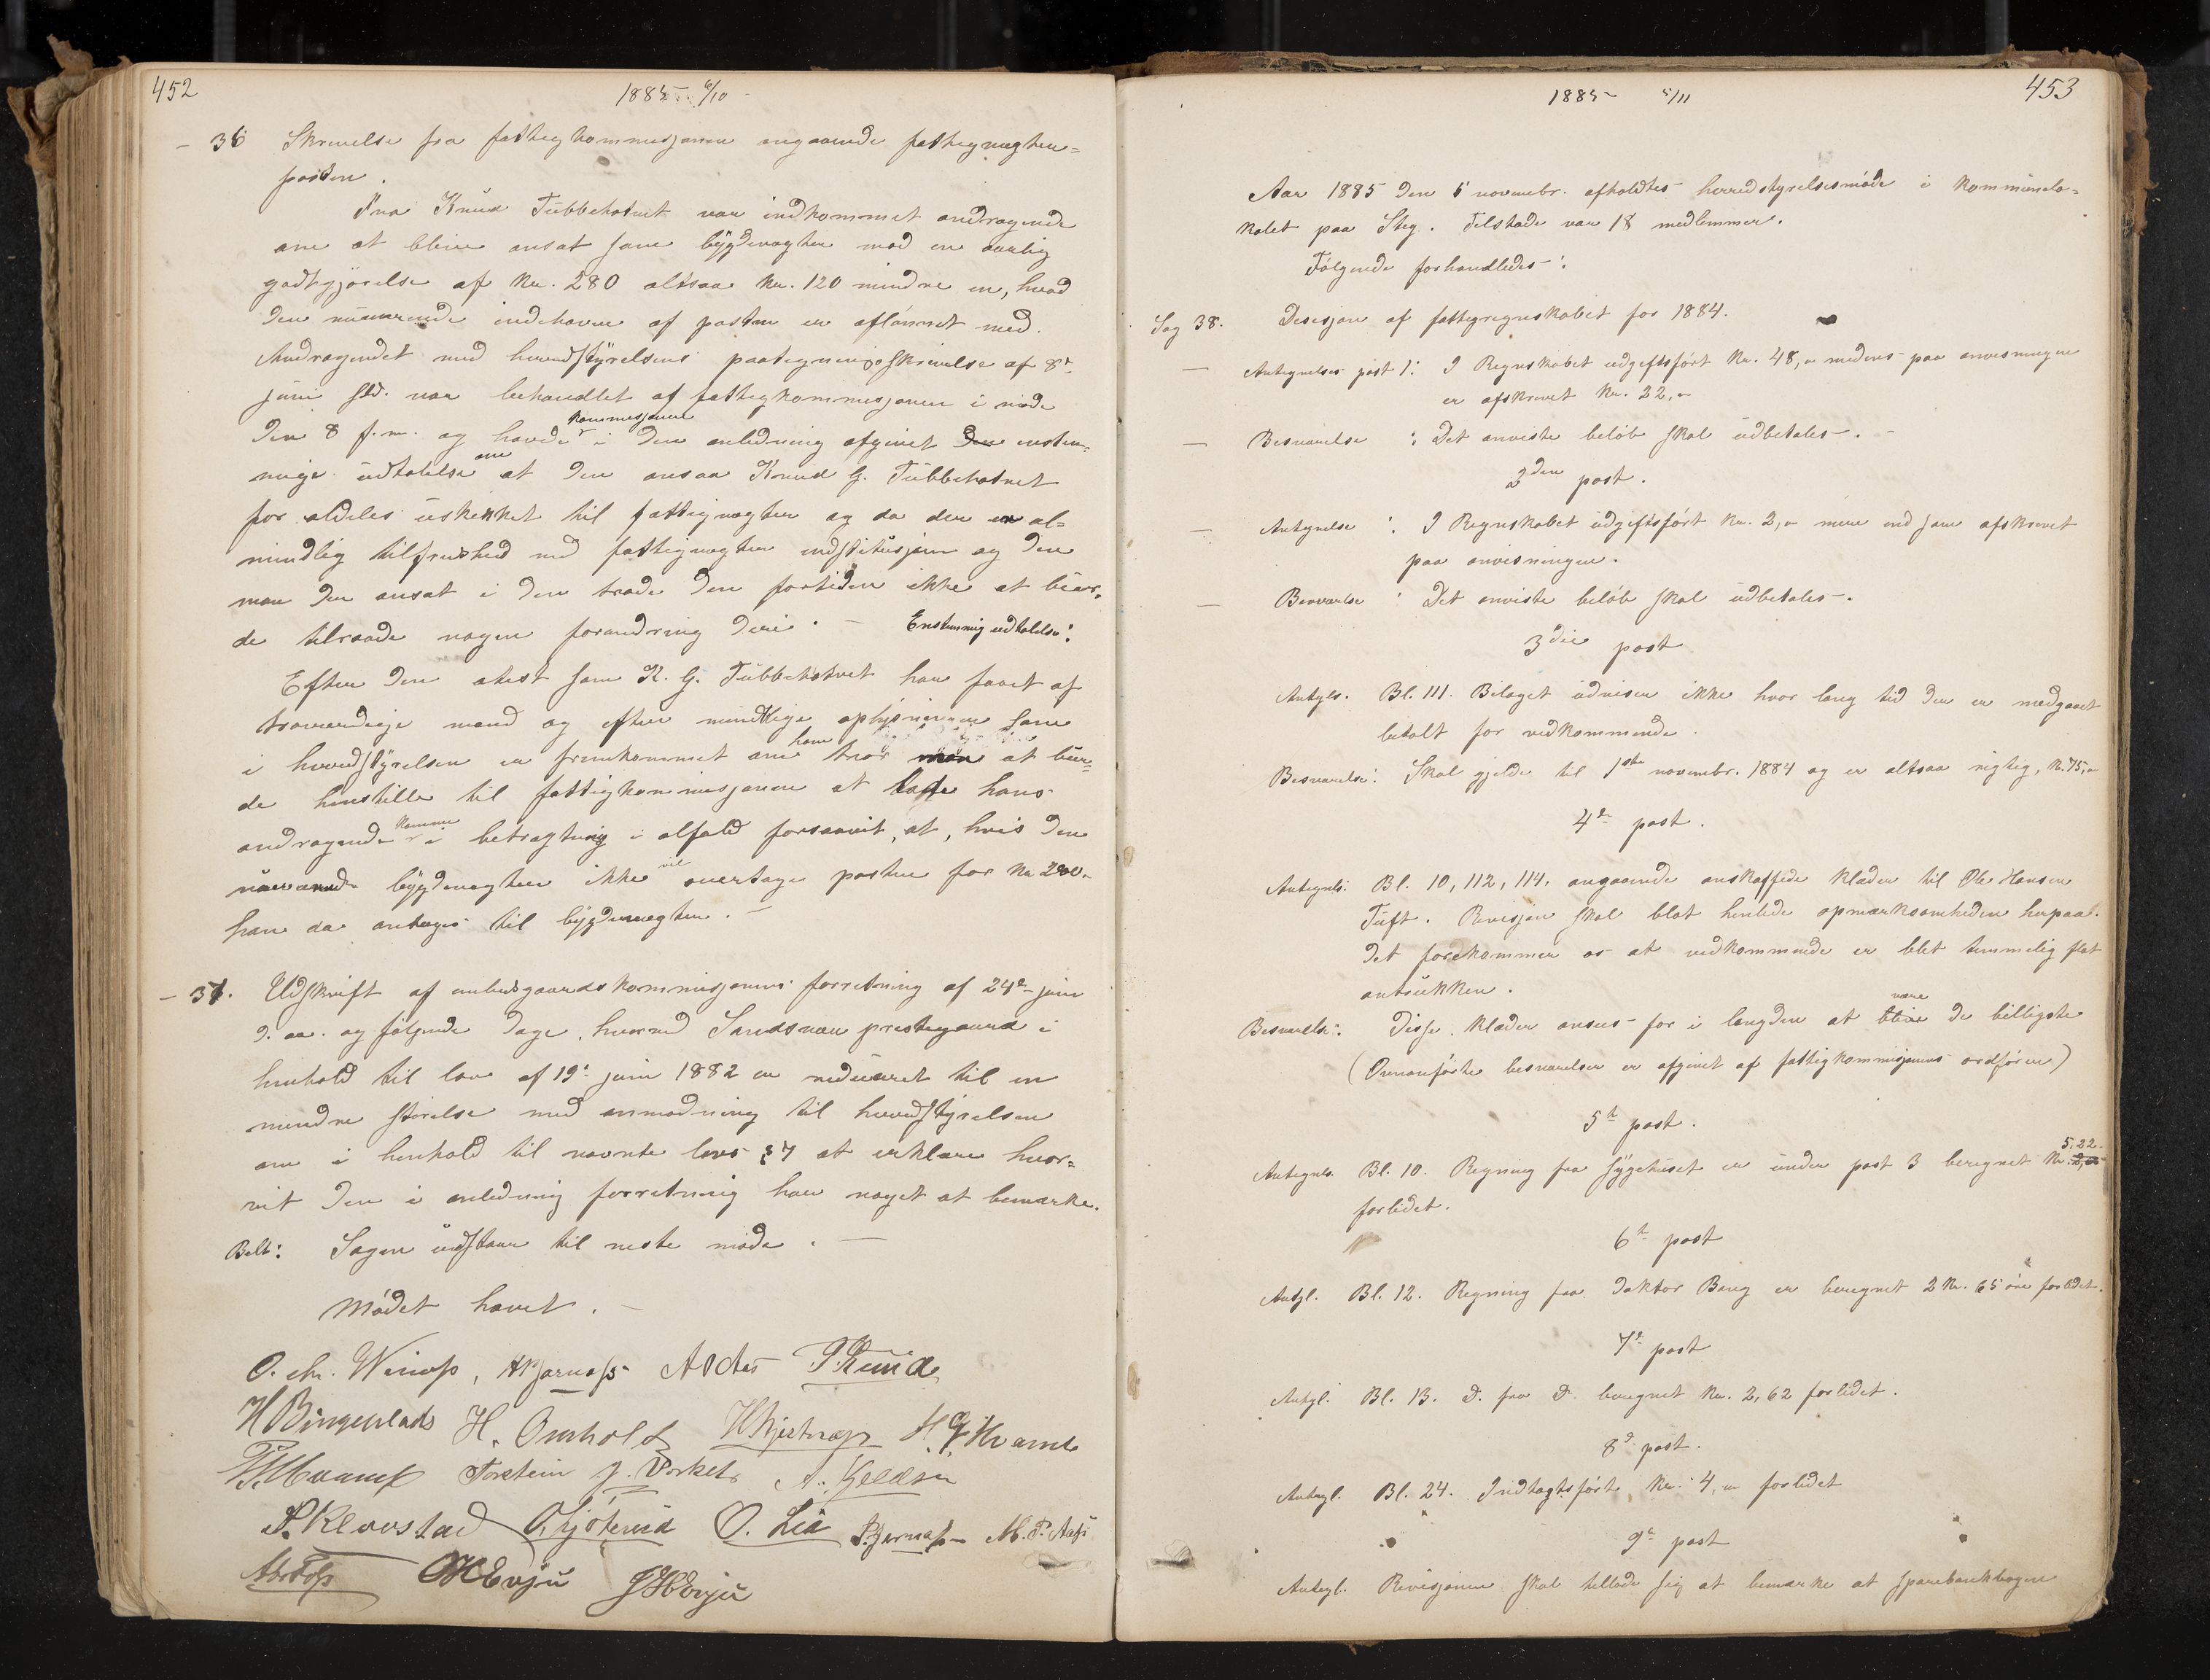 452
1885 6/10
- 36 Skrivelse fra fattigkommisjonen angaaende fattigvægter=
posten.
Fra Knud Tubbehotvet var indkommet andragende
om at blive ansat som bygdevægter mod en aarlig
godtgjørelse af Kr. 280 altsaa Kr. 120 mindre en, hvad
den nuværende indehaver af posten er aflønnet med.
Andragendet med herredstyrelsens paategningsskrivelse af 8de
juni sld. var behandlet af fattigkommisjonen i møde
den 8 f.m. og havde kommisjonen i den anledning afgivet den enstem-
mige udtalelse om at den ansaa Knud G. Tubbehotvet
for aldeles uskikket til fattigvægter og da der er al=
mindlig tilfredshed med fattigvægter institusjonen og den
man den ansat i den trode den fortiden ikke at bur-
de tilraade nogen forandring deri. — Enstemmig udtalelse:
Efter den atest som K. G. Tubbehotvet har faaet af
troværdige mænd og efter mundtlige oplysninger som
i herredstyrelsen er fremkommet om ham tror man at bur=
de henstille til fattigkommisjonen at lade hans
andragende komme i betragtning i alfald forsaavit, at, hvis den
nuværende bygdevægter ikke vil overtage posten for Kr 280.
han da antages til bygdevægter. —
- 37. Udskrift af embedsgaardskommisjonens forretning af 24de juni
d. aa. og følgende dage, hvorved Sandsvær prestegaard i
henhold til lov af 19de juni 1882 er reduceret til en
mindre størelse med anmodning til herredstyrelsen
om i henhold til nævnte lovs §7 at erklære hvor=
vit den i anledning forretning har noget at bemærke.
Beslt: Sagen udstaar til neste møde. —
Mødet hævet. —
O. Chr. Winop, A. Bjørnaps A Odtes P Rund
H Bingeplads H. Omholt H. Hjertnep H. G. Hvamb
P. Hvamb Torstein J. Vorket A. Gjeldsen
P. Klovstad O. Gjøterud O. Lia P. Gjernaps M. P. Aasti
A Botop O K Evju J H Evju
453
1885 5/11
Aar 1885 den 5 novembr. afholdtes herredstyrelsesmøde i kommunelo=
kalet paa Steg. Tilstæde var 18 medlemmer.
Følgende forhandledes:
Sag 38. Desisjon af fattigregnskabet for 1884.
— Antegnelses post 1: I Regnskabet udgiftsført Kr. 48,00 medens paa anvisningen
er afskrevet Kr. 22,00
— Besvarelse: Det anviste beløb skal udbetales. -
2den post.
— Antegnelse: I Regnskabet udgiftsført Kr. 2,00 mere end som afskrevet
paa anvisningen.
— Besvarelse: Det anviste beløb skal udbetales.
3die post
Antgls. Bl. 111. Bilaget udviser ikke hvor lang tid der er medgaaet
betalt for vedkommende.
Besvarelse: Skal gjelde til 1ste novembr. 1884 og er altsaa rigtig, K. 75,00
4de post.
Antegnls: Bl. 10, 112, 114. angaaende anskaffede klæder til Ole Hansen
Tuft. Revisjonen skal blot henlede opmærksomheden herpaa.
Det forekommer os at vedkommende er blet temmelig flot
antrukken.
Besvarelse: Disse klæder ansees for i længden at blive være de billigste
(Ovenanførte besvarelser er afgivet af fattigkommisjonens ordfører)
5te post.
Antegnls. Bl. 10. Regning fra sygehuset er under post 3 beregnet Kr. 2,00 5,22
forlidet.
6te post
Antgl. Bl. 12. Regning fra Doktor Bang er beregnet 2 Kr. 65 øre forlidet.
7de post
Antgl. Bl. 13. D. fra D. beregnet Kr. 2,62 forlidet.
8de post.
Antegl. Bl. 24. Indtægtsført Kr. 4,00 forlidet
9de post
Antegl. Revisjonen skal tillade sig at bemærke at sparebankbogen